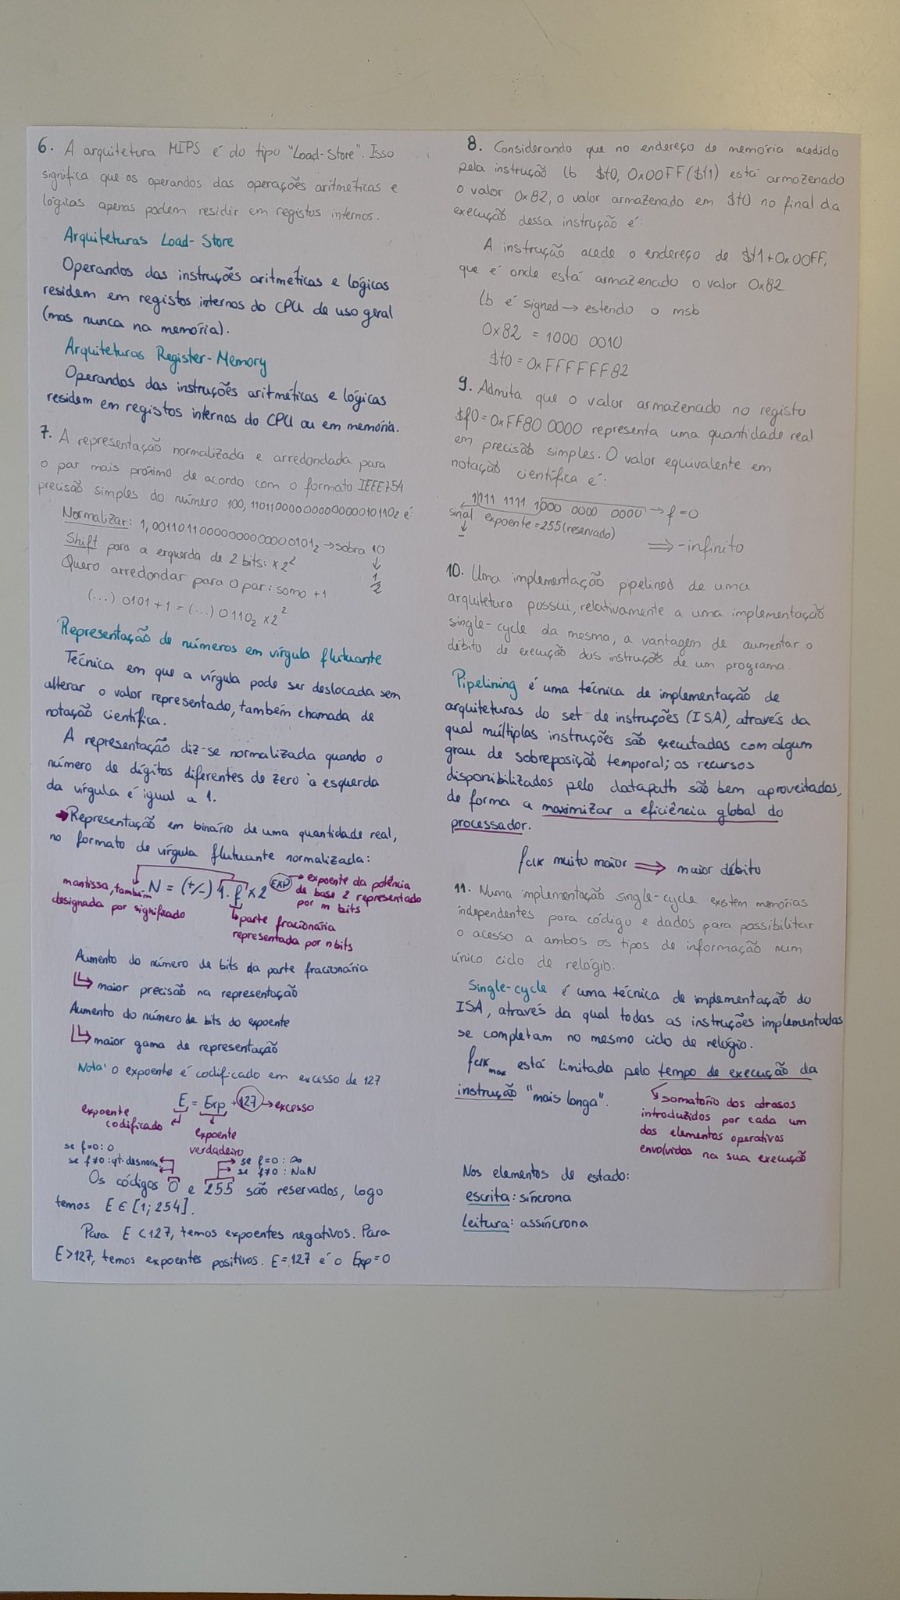 6. A arquitetura MIPS é do tipo "Load-Store". Isso
significa que os operandos das operações aritméticas e
lógicas apenas podem residir em registos internos.
Arquiteturas Load-Store
Operandos das instruções aritméticas e lógicas
residem em registos internos do CPU de uso geral
(mas nunca na memória).
Arquiteturas Register-Memory
Operandos das instruções aritméticas e lógicas
residem em registos internos do CPU ou em memória.
7. A representação normalizada e arredondada para
o par mais próximo de acordo com o formato IEEE754
precisão simples do número
Normalizar:
→ sobra 10
Shift para a esquerda de 2 bits: x2²
1/2
Quero arredondar para o par: somo +1
(...) 0101 + 1 = (...) 0110₂ x2²
Representação de números em vírgula flutuante
Técnica em que a vírgula pode ser deslocada sem
alterar o valor representado, também chamada de
notação científica.
A representação diz-se normalizada quando o
número de dígitos diferentes de zero à esquerda
da vírgula é igual a 1.
→ Representação em binário de uma quantidade real,
no formato de vírgula flutuante normalizada:
mantissa, também
designada por significado
N = (+/-) 1.f x 2^Exp
→ expoente da potência
de base 2 representado
por m bits
parte fracionária
representada por n bits
Aumento do número de bits da parte fracionária
↳ maior precisão na representação
Aumento do número de bits do expoente
↳ maior gama de representação
Nota: o expoente é codificado em excesso de 127
E = Exp + 127 → excesso
expoente
codificado
expoente
verdadeiro
se f=0: 0
se f≠0: qt. desnorm.
se f=0: ∞
se f≠0: NaN
Os códigos 0 e 255 são reservados, logo
temos E ∈ [1; 254].
Para E < 127, temos expoentes negativos. Para
E > 127, temos expoentes positivos. E = 127 é o Exp = 0
8. Considerando que no endereço de memória acedido
pela instrução lb $t0, 0x00FF($t1) está armazenado
o valor 0x82, o valor armazenado em $t0 no final da
execução dessa instrução é:
A instrução acede o endereço de $t1 + 0x00FF,
que é onde está armazenado o valor 0x82
lb é signed → estendo o msb
0x82 = 1000 0010
$t0 = 0xFFFFFF82
9. Admita que o valor armazenado no registo
$f0 = 0xFF80 0000 representa uma quantidade real
em precisão simples. O valor equivalente em
notação científica é:
1111 1111 1000 0000 0000 → f = 0
sinal expoente = 255 (reservado)
↓
-
⟹ -infinito
10. Uma implementação pipelined de uma
arquitetura possui, relativamente a uma implementação
single-cycle da mesma, a vantagem de aumentar o
débito de execução das instruções de um programa.
Pipelining é uma técnica de implementação de
arquiteturas do set de instruções (ISA), através da
qual múltiplas instruções são executadas com algum
grau de sobreposição temporal; os recursos
disponibilizados pelo datapath são bem aproveitados,
de forma a maximizar a eficiência global do
processador.
fCLK muito maior ⟹ maior débito
11. Numa implementação single-cycle existem memórias
independentes para código e dados para possibilitar
o acesso a ambos os tipos de informação num
único ciclo de relógio.
Single-cycle é uma técnica de implementação do
ISA, através da qual todas as instruções implementadas
se completam no mesmo ciclo de relógio.
fCLKmax está limitada pelo tempo de execução da
instrução "mais longa".
somatório dos atrasos
introduzidos por cada um
dos elementos operativos
envolvidos na sua execução
Nos elementos de estado:
escrita: síncrona
leitura: assíncrona